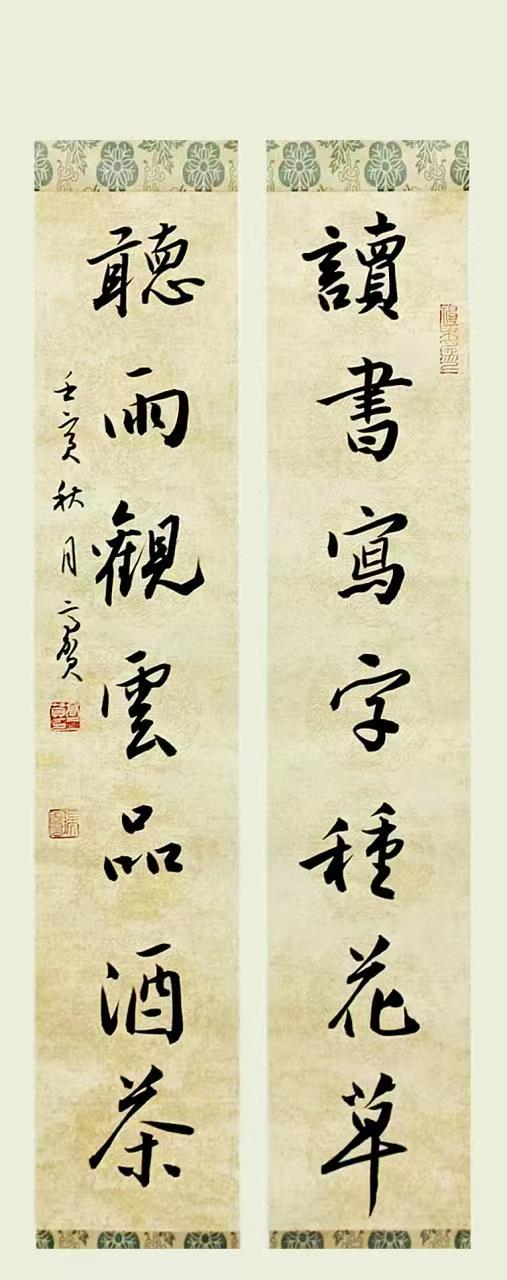 讀書寫字種花草
聽雨觀雲品酒茶
壬寅秋月